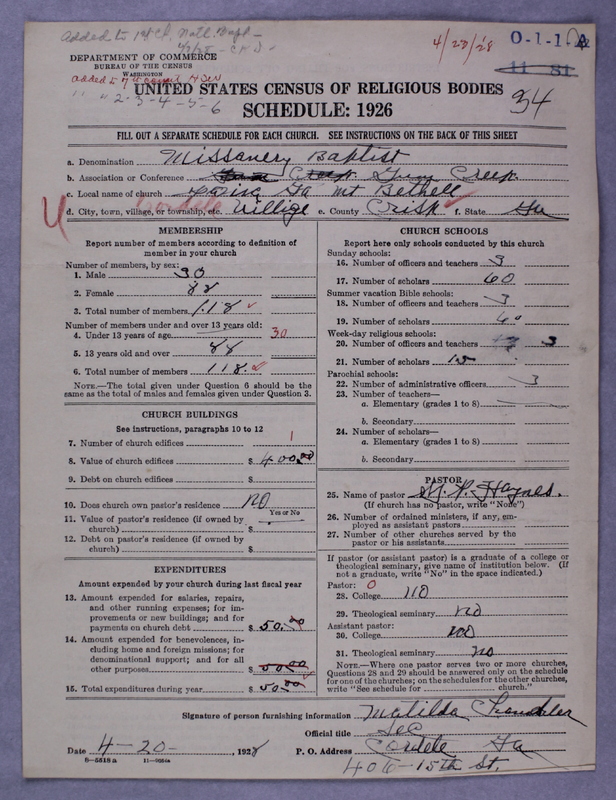 Added to 1st Ch. Natl. Bapt —
4/23/28
O-1-1
11 81
DEPARTMENT OF COMMERCE
BUREAU OF THE CENSUS
WASHINGTON
Added to
" " 2-3-4-5-6
UNITED STATES CENSUS OF RELIGIOUS BODIES
SCHEDULE: 1926
34
FILL OUT A SEPARATE SCHEDULE FOR EACH CHURCH. SEE INSTRUCTIONS ON THE BACK OF THIS SHEET
a. Denomination Missanery Baptist
b. Association or Conference Creek
c. Local name of church Ga Mt Bethell
Cordele
d. City, town, village, or township, etc. Villige e. County Crisp f. State Ga
MEMBERSHIP
Report number of members according to definition of member in your church
Number of members, by sex:
1. Male 30
2. Female 88
3. Total number of members 118
Number of members under and over 13 years old:
4. Under 13 years of age 30
5. 13 years old and over 88
6. Total number of members 118
NOTE.—The total given under Question 6 should be the same as the total of males and females given under Question 3.
CHURCH BUILDINGS
See instructions, paragraphs 10 to 12
7. Number of church edifices 1
8. Value of church edifices $ 400.00
9. Debt on church edifices $
10. Does church own pastor's residence? NO
Yes or No
11. Value of pastor's residence (if owned by church) $
12. Debt on pastor's residence (if owned by church) $
EXPENDITURES
Amount expended by your church during last fiscal year
13. Amount expended for salaries, repairs, and other running expenses; for improvements or new buildings; and for payments on church debt $ 50.00
14. Amount expended for benevolences, including home and foreign missions; for denominational support; and for all other purposes $ 50.00
15. Total expenditures during year $ 50.00
CHURCH SCHOOLS
Report here only schools conducted by this church
Sunday schools:
16. Number of officers and teachers 3
17. Number of scholars 60
Summer vacation Bible schools:
18. Number of officers and teachers 3
19. Number of scholars 60
Week-day religious schools:
20. Number of officers and teachers 3
21. Number of scholars 15
Parochial schools:
22. Number of administrative officers 3
23. Number of teachers—
a. Elementary (grades 1 to 8)
b. Secondary
24. Number of scholars—
a. Elementary (grades 1 to 8)
b. Secondary
PASTOR
25. Name of pastor Haynes.
(If church has no pastor, write "None")
26. Number of ordained ministers, if any, employed as assistant pastors
27. Number of other churches served by the pastor or his assistants
If pastor (or assistant pastor) is a graduate of a college or theological seminary, give name of institution below. (If not a graduate, write "No" in the space indicated.)
Pastor: 0
28. College no
29. Theological seminary no
Assistant pastor:
30. College no
31. Theological seminary no
NOTE.—Where one pastor serves two or more churches, Questions 28 and 29 should be answered only on the schedule for one of the churches; on the schedules for the other churches, write "See schedule for church."
Signature of person furnishing information Matilda Chandler
Official title Sec
Date 4-20-, 1928 P. O. Address Cordele Ga
8-5518a
406-15th St.